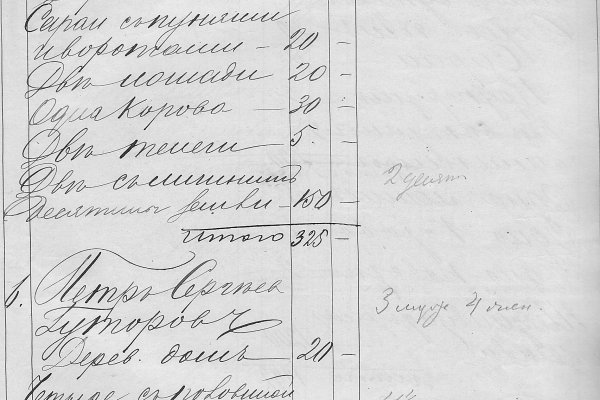 Сараи съ пунями
и воротами — 20 —
Двѣ лошади 20 —
Одна Корова — 30 —
Двѣ телеги 5. —
Двѣ съ
Десятины земли — 150 — 2 десят
Итого 325 —
6. Петръ Сергѣев
Гуторовъ 3 муж 4 жен.
Дерев. домъ — 20 —
Четыре съ половиной